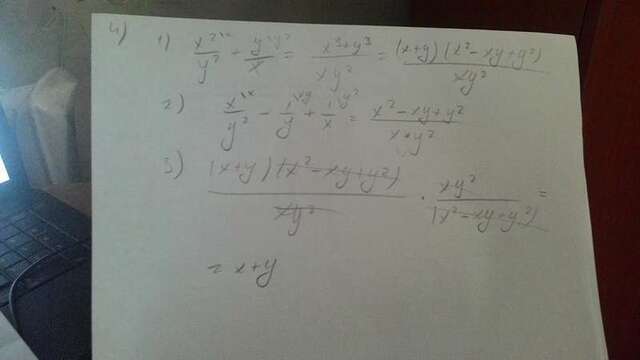 4) 1) x²\x/y² + y\y²/x = x³+y³/xy² = (x+y)(x²-xy+y²)/xy²
2) x\x/y² - 1\xy/y + 1\y²/x = x²-xy+y²/x•y²
3) (x+y)(x²-xy+y²)/xy² · xy²/(x²-xy+y²) =
= x+y